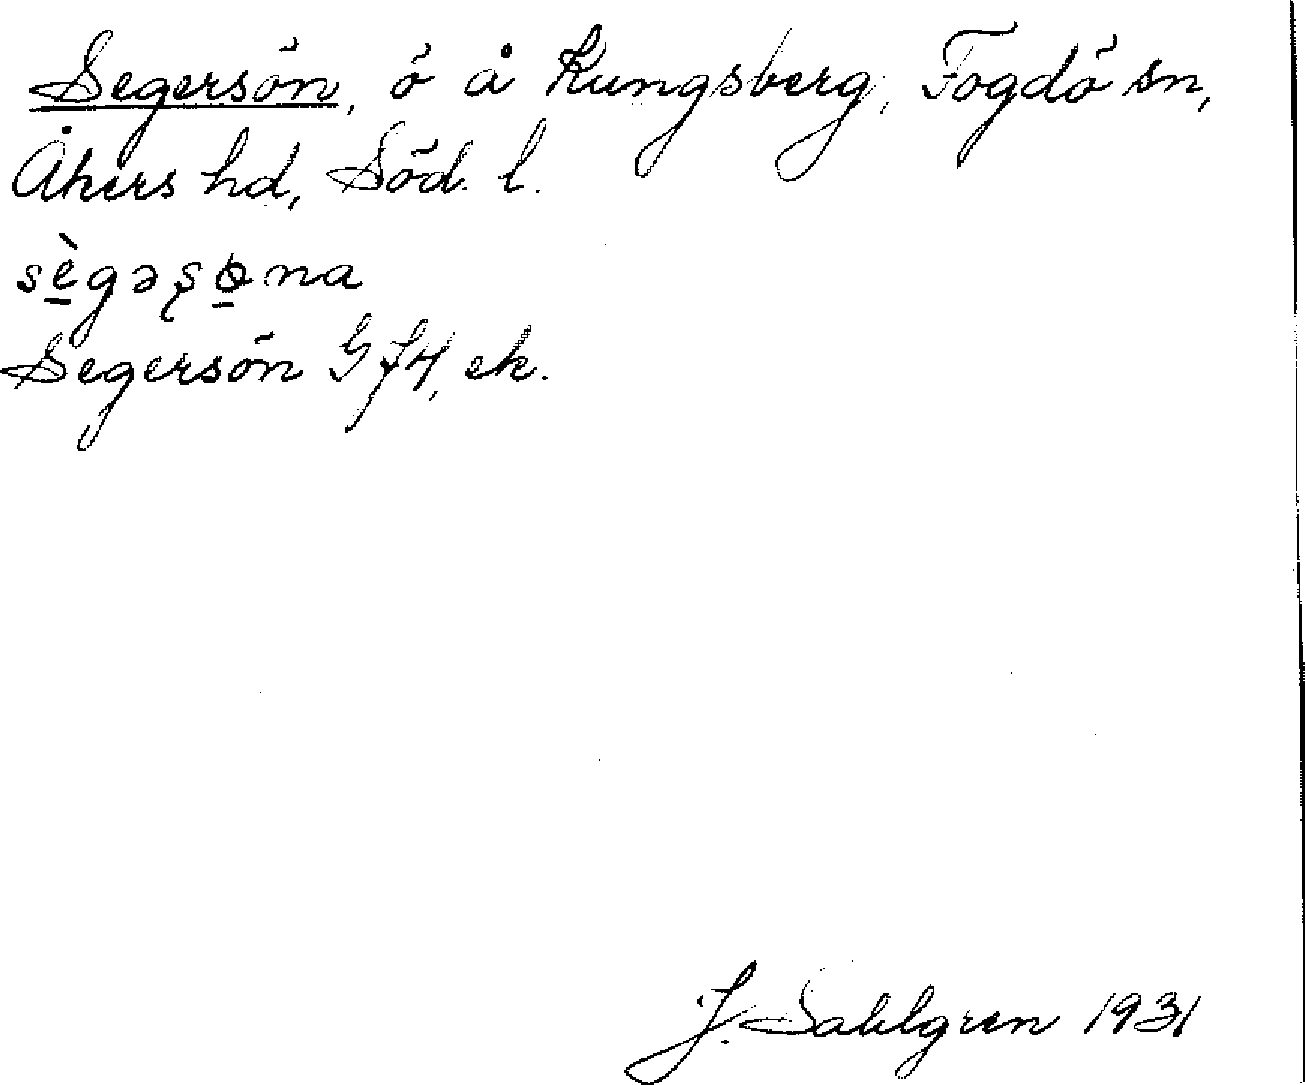 Segersön, ö å Kungsberg, Fogdö sn,
Åkers hd, Söd. l.
sè̱gəʂø̱na
Segersön GJ4, ek.
J. Sahlgren 1931